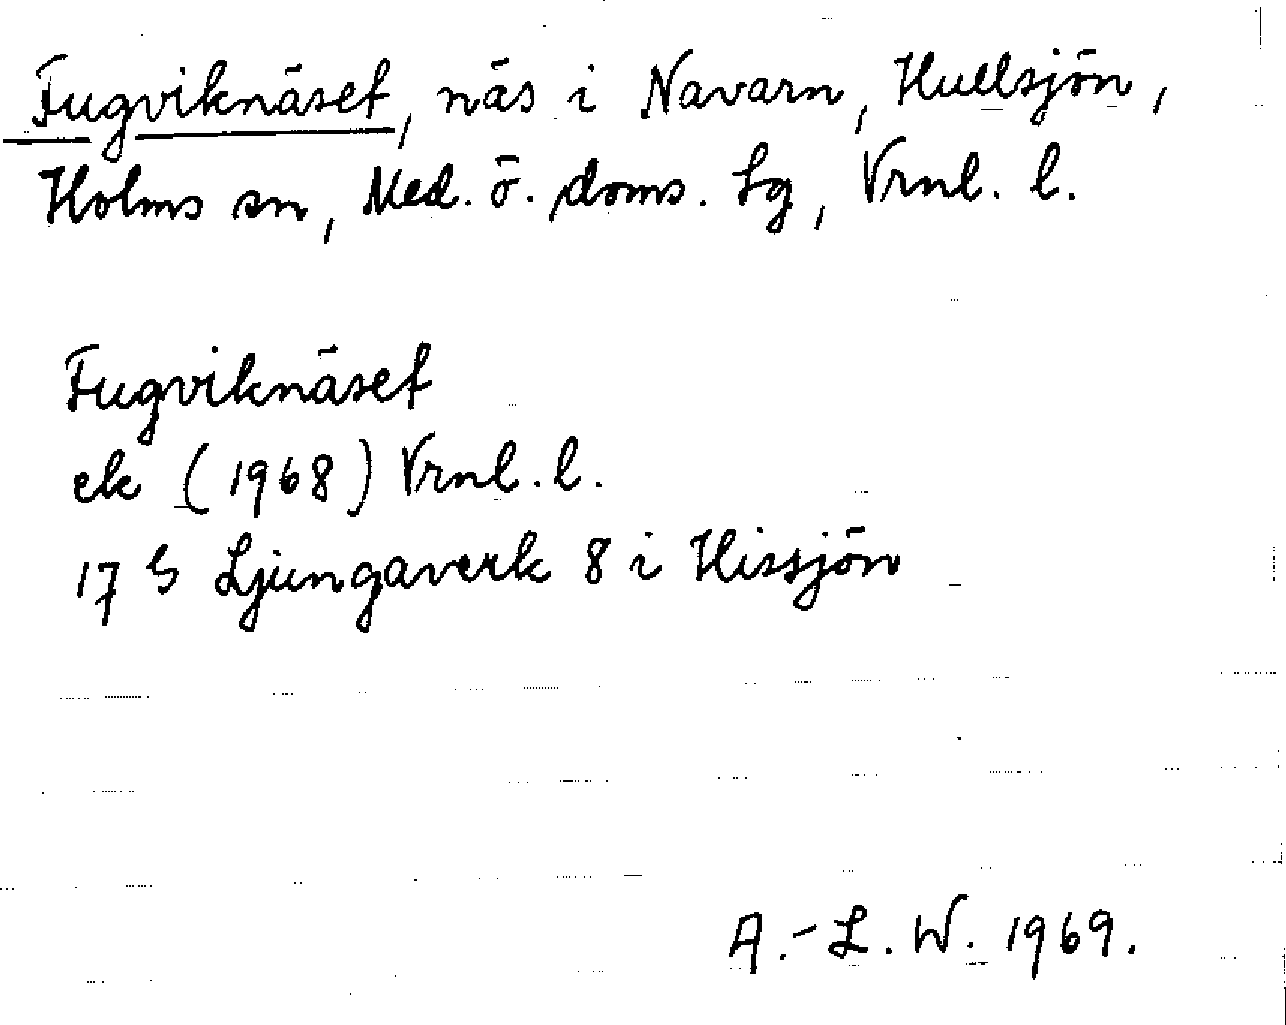 Fugviknäset, näs i Navarn, Hullsjön,
Holms sn, Med. ö. doms. lg, Vrnl. l.
Fugviknäset
ek (1968) Vrnl. l.
17 G Ljungaverk 8 i Hissjön
A.-L. W. 1969.